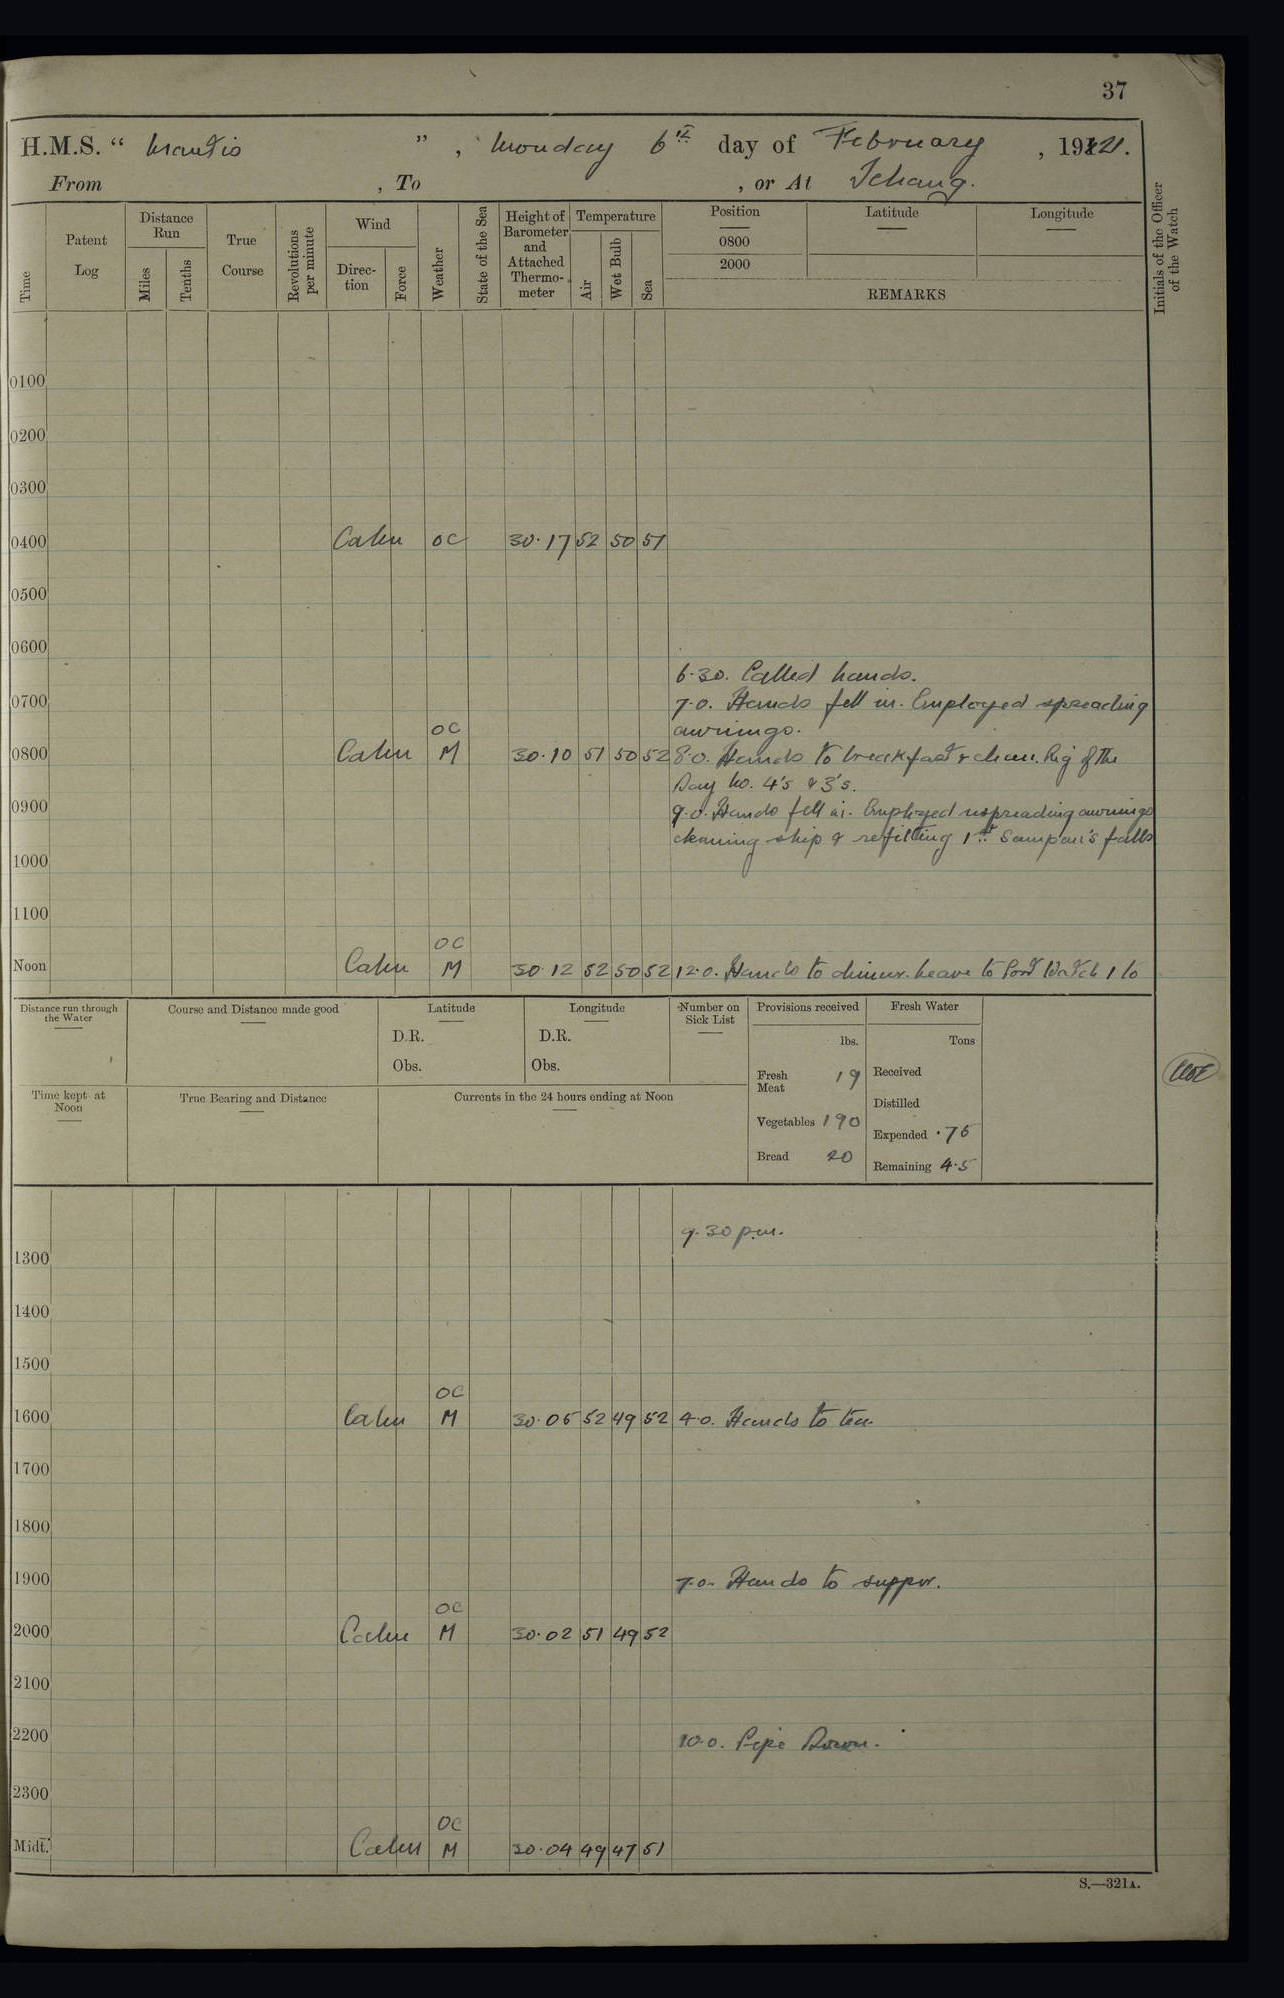 37
H.M.S. " Mantis " , Monday 6th day of February , 1921.
From , To , or At Ichang.
Time
Patent Log
Distance Run
Miles
Tenths
True Course
Revolutions per minute
Wind
Direction
Force
Weather
State of the Sea
Height of Barometer and Attached Thermometer
Temperature
Air
Wet Bulb
Sea
Position
0800
2000
Latitude
Longitude
REMARKS
Initials of the Officer of the Watch
0100
0200
0300
0400 Calm OC 30.17 52 50 51
0500
0600
6.30. Called hands.
0700 7.0. Hands fell in. Employed spreading
awnings.
OC
0800 Calm M 30.10 51 50 52 8.0. Hands to breakfast & clean. Rig of the
Day No. 4's & 3's.
0900 9.0. Hands fell in. Employed unspreading awnings
cleaning ship & refitting 1st Sampan's falls
1000
1100
OC
Noon Calm M 30.12 52 50 52 12.0. Hands to dinner. Leave to Port Watch 1 to
Distance run through the Water
Course and Distance made good
Latitude
D.R.
Obs.
Longitude
D.R.
Obs.
Number on Sick List
Provisions received
lbs.
Fresh Meat 19
Vegetables 190
Bread 20
Fresh Water
Tons
Received
Distilled
Expended .75
Remaining 4.5
Time kept at Noon
True Bearing and Distance
Currents in the 24 hours ending at Noon
9.30 p.m.
1300
1400
1500
OC
1600 Calm M 30.05 52 49 52 4.0. Hands to tea.
1700
1800
1900 7.0. Hands to supper.
OC
2000 Calm M 30.02 51 49 52
2100
2200 10.0. Pipe Down.
2300
OC
Midt. Calm M 30.04 49 47 51
S.—321A.